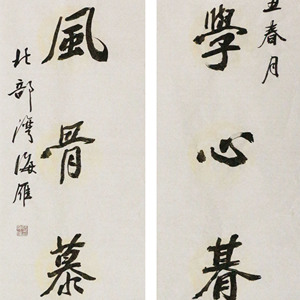 丑春月
學心
風骨慕
北部灣海雁